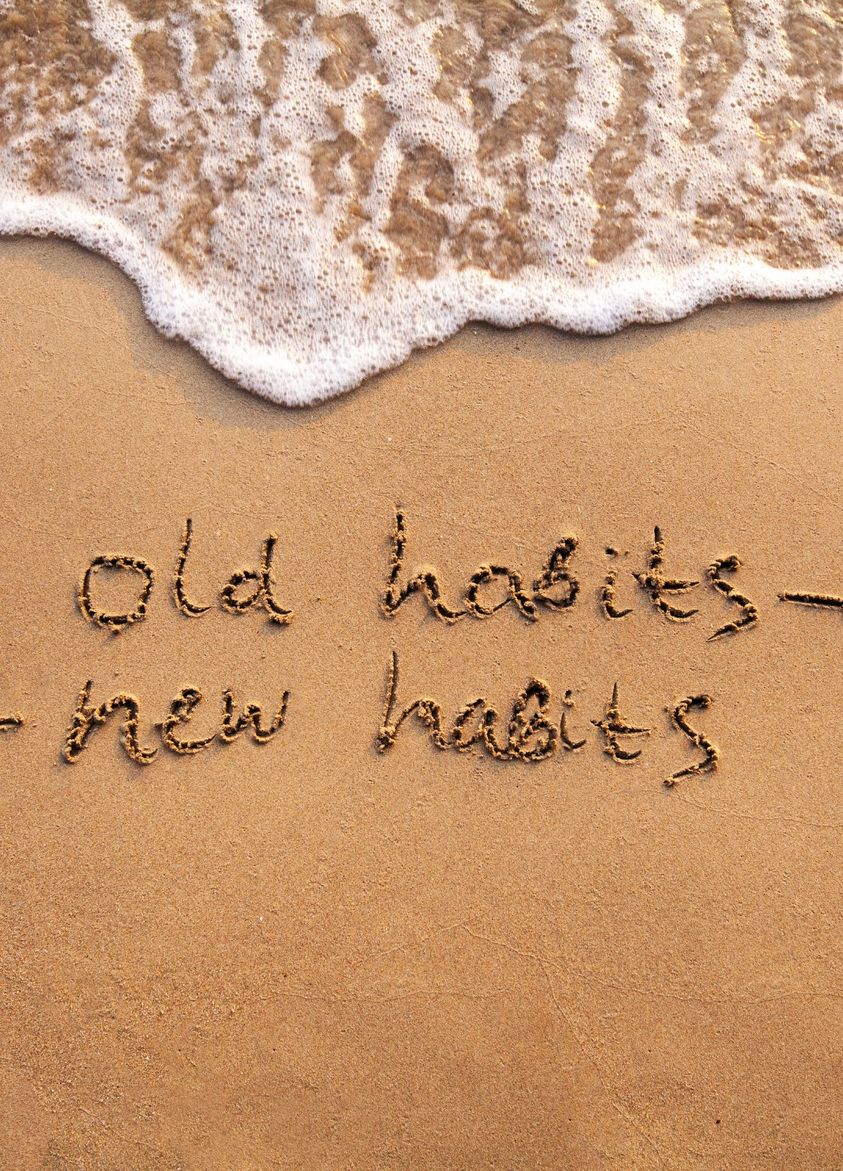 old habits-
-new habits